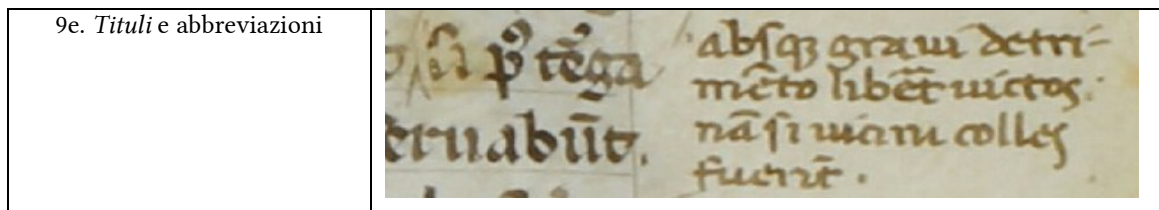 9e. Tituli e abbreviazioni
p̄ tēga
eruabūt.
absqꝫ graui detri-
mēto libēt uictos.
nā si uicini colles
fuerīt.